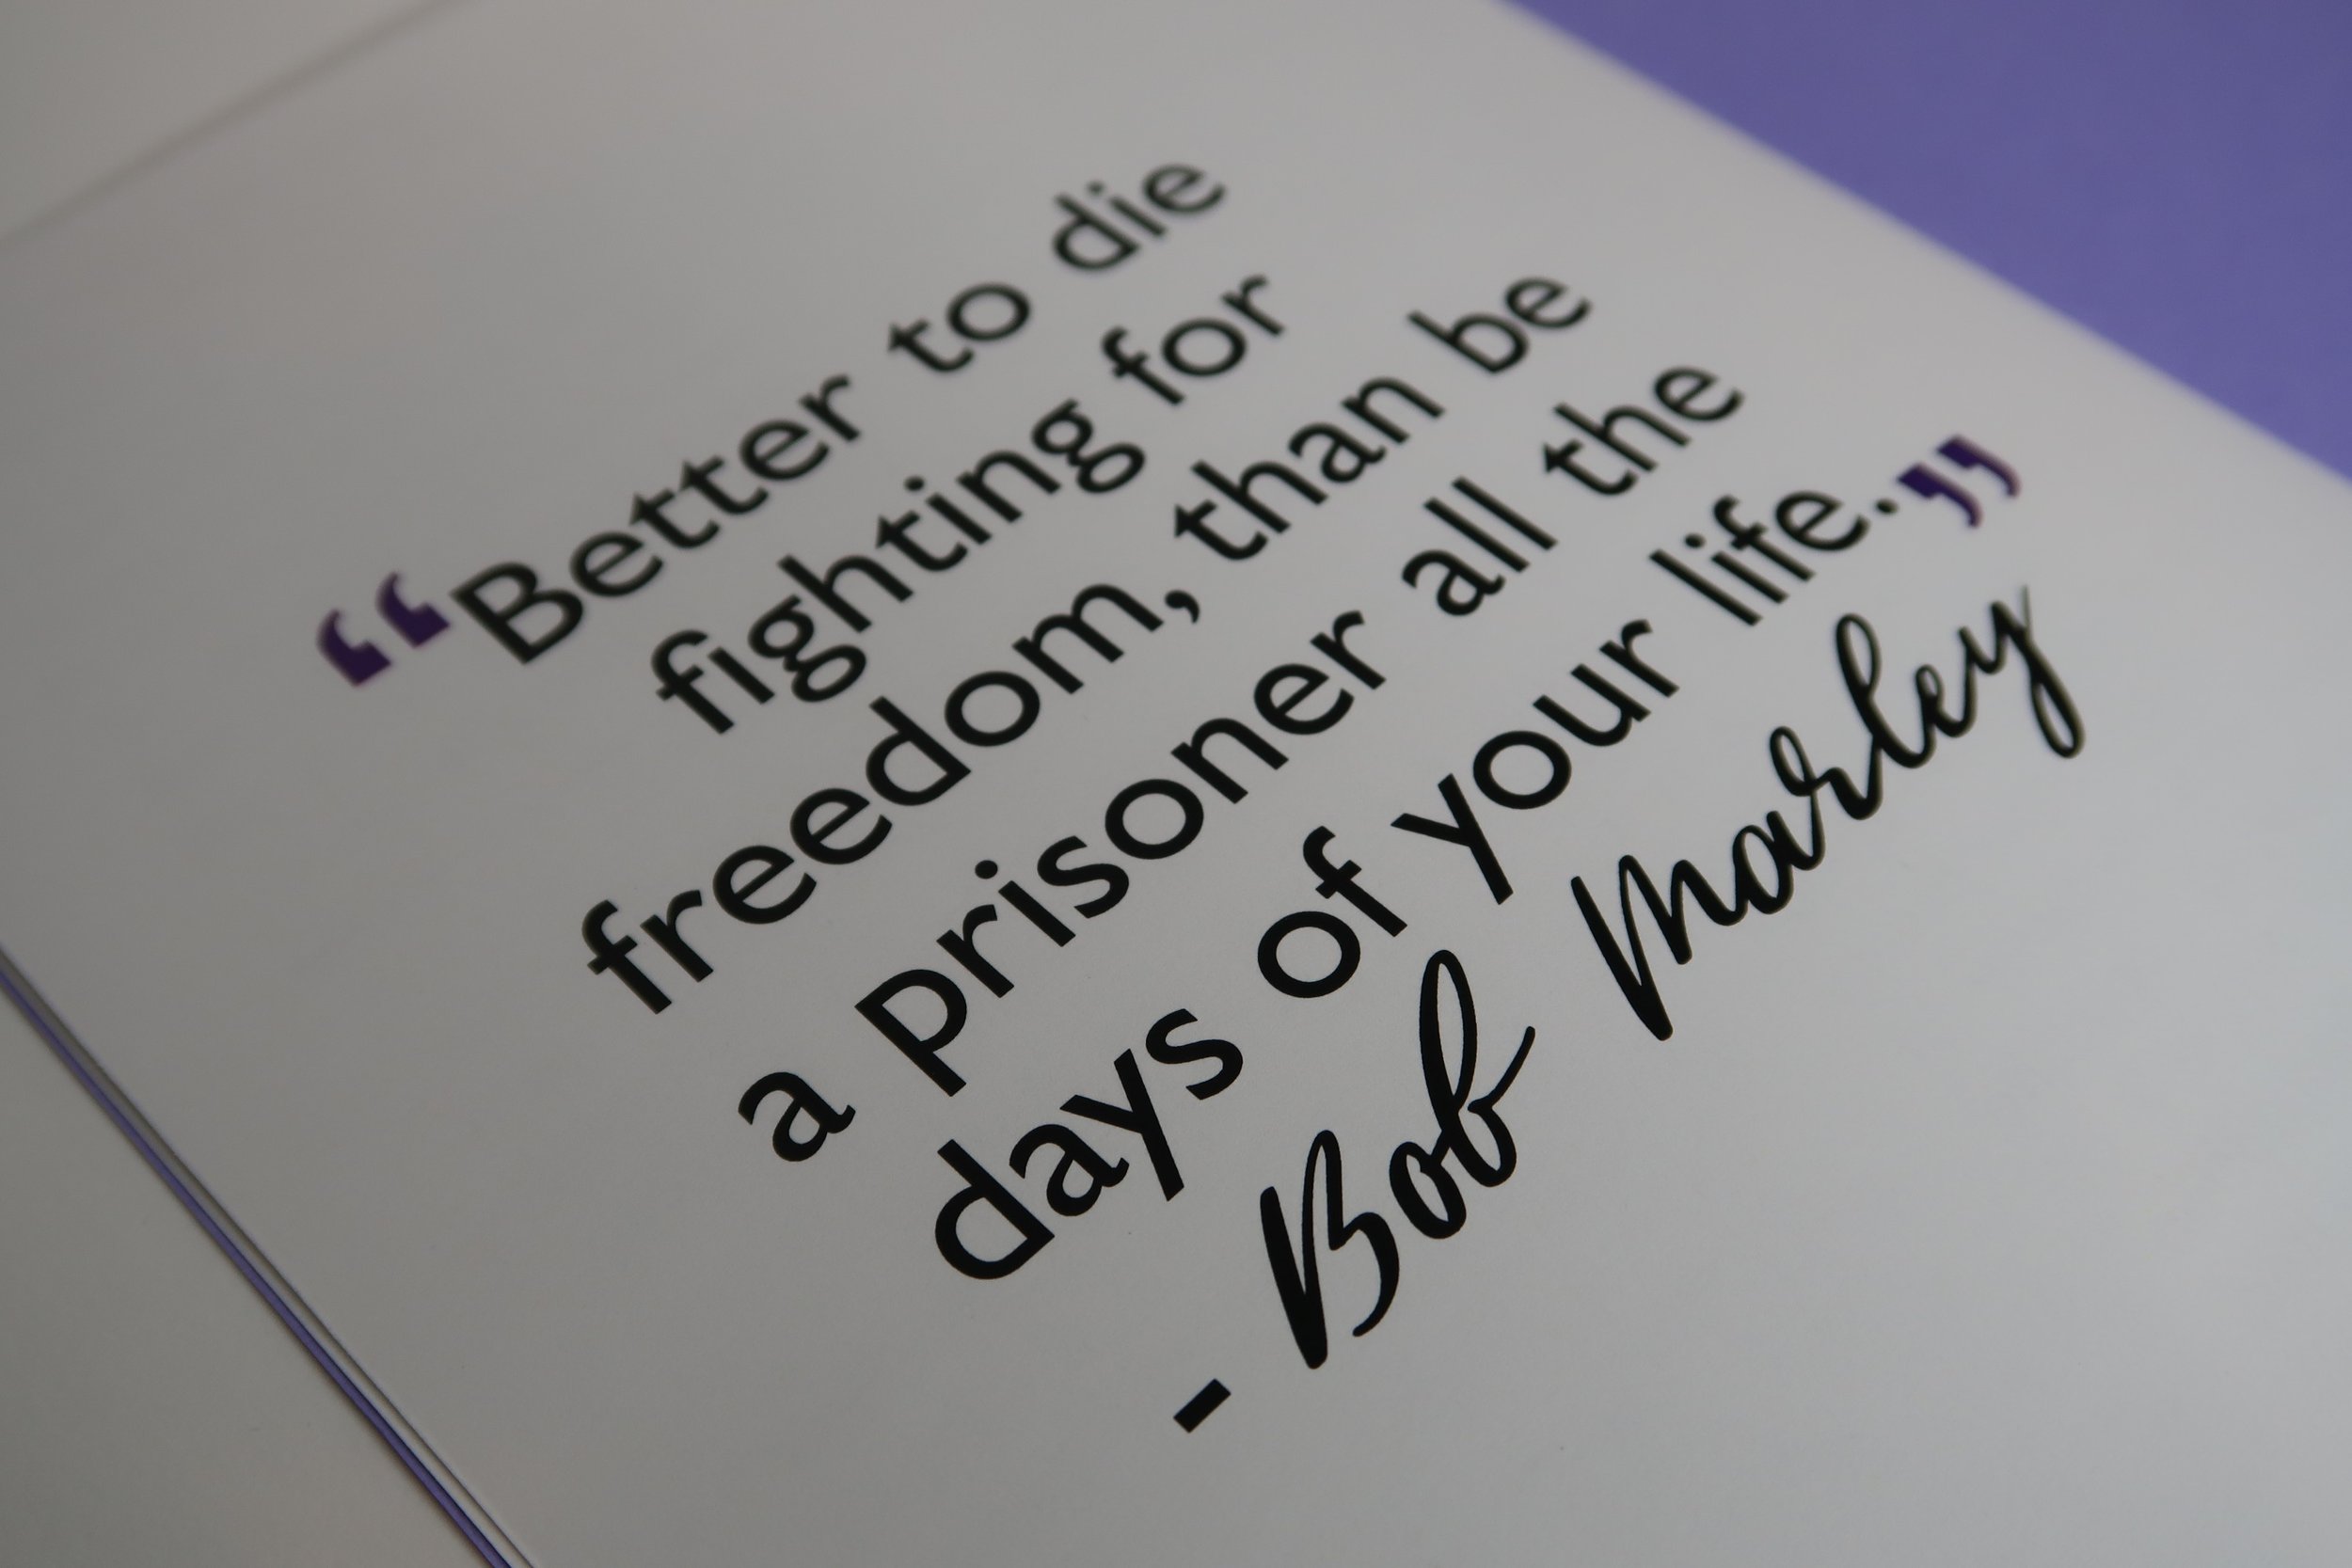 “Better to die
fighting for
freedom, than be
a prisoner all the
days of your life.”
- Bob Marley